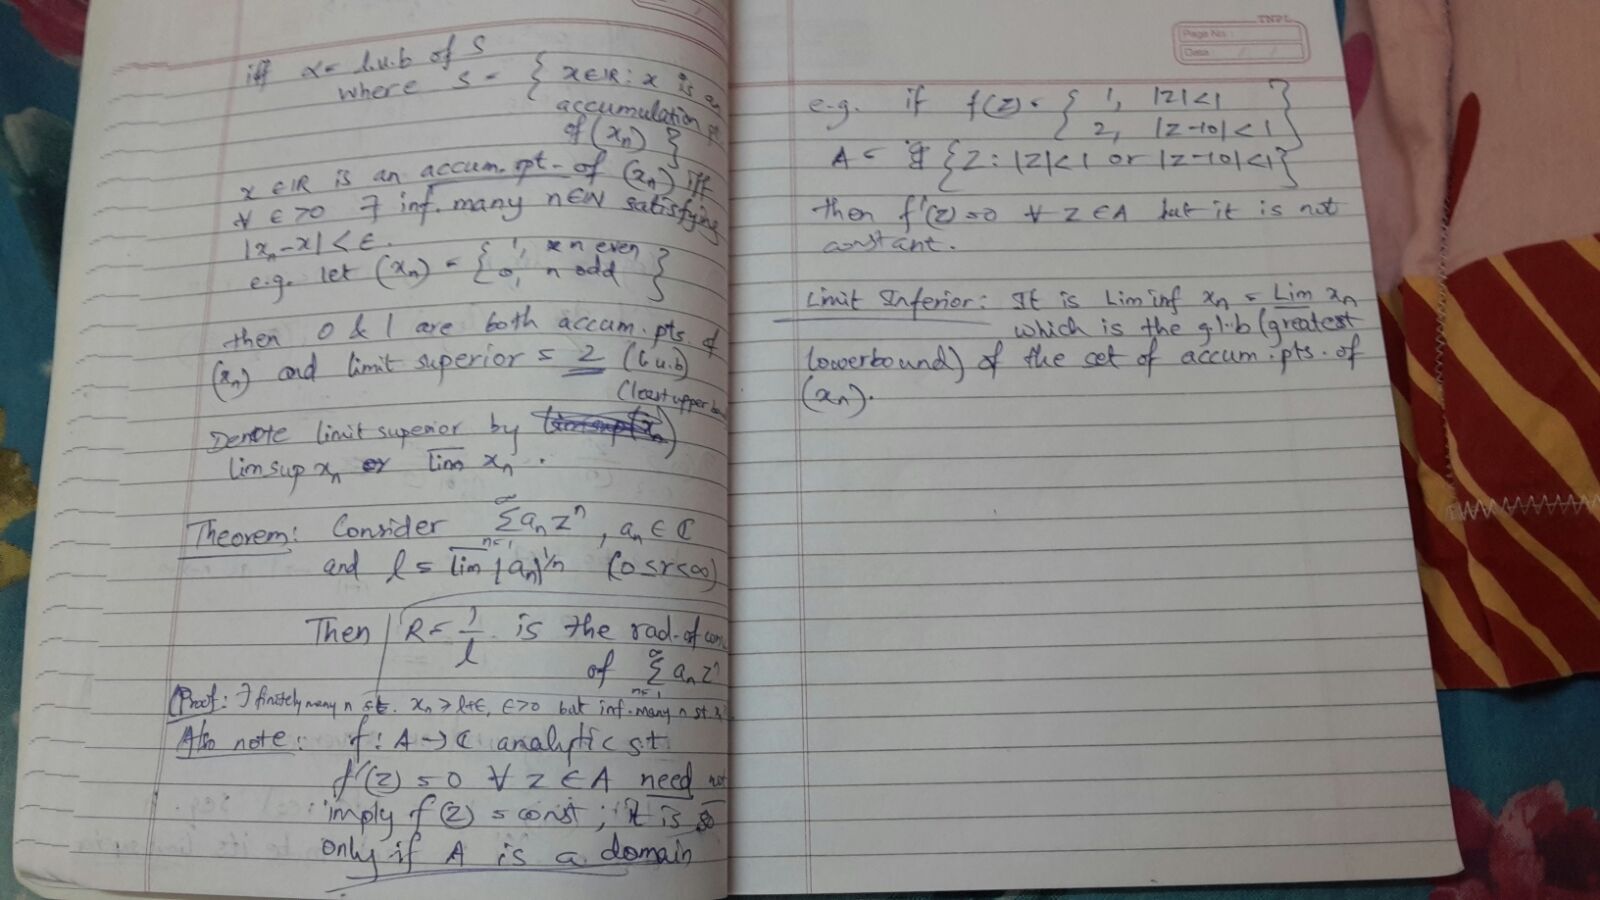 iff α = l.u.b of S
where S = { x∈ℝ : x is an
accumulation pt.
of (xₙ) }
x ∈ ℝ is an accum. pt. of (xₙ) iff
∀ ε>0 ∃ inf. many n∈ℕ satisfying
|xₙ-x| < ε.
e.g. let (xₙ) = { 1, n even
0, n odd }
then 0 & 1 are both accum. pts. of
(xₙ) and limit superior = 2 (l.u.b)
(least upper
Denote limit superior by
lim sup xₙ or l̅i̅m̅ xₙ .
Theorem: Consider ∑_{n=1}^∞ aₙ zⁿ , aₙ ∈ ℂ
and l = l̅i̅m̅ |aₙ|^{1/n} (0≤r≤∞)
Then R = 1/l is the rad. of
of ∑_{n=1}^∞ aₙ zⁿ
(Proof: ∃ finitely many n st. xₙ > l+ε, ε>0 but inf. many n st
Also note: f : A → ℂ analytic s.t
f'(z) = 0 ∀ z ∈ A need not
imply f(z) = const ; it is so
only if A is a domain
TNPL
Page No :
Date : / /
e.g. if f(z) = { 1, |z|<1
2, |z-10|<1 }
A = {z : |z|<1 or |z-10|<1}
then f'(z)=0 ∀ z∈A but it is not
constant.
Limit Inferior: It is Lim inf xₙ = L̲i̲m̲ xₙ
which is the g.l.b (greatest
lowerbound) of the set of accum. pts. of
(xₙ).